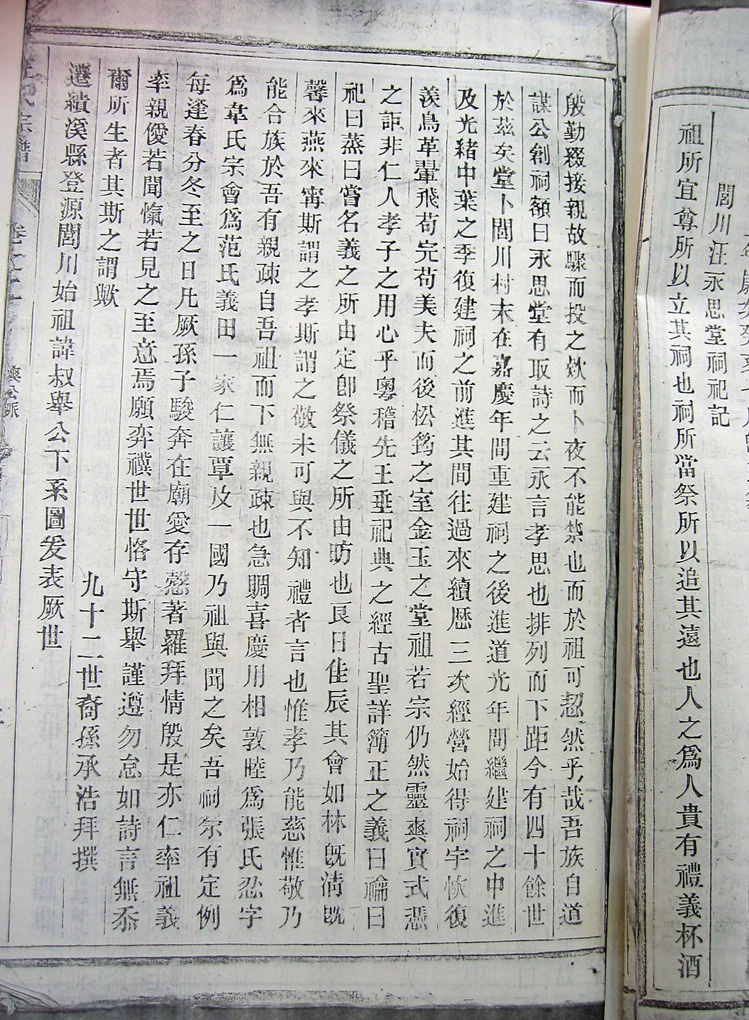 閭川汪永思堂祠祀記
祖所宜尊所以立其祠也祠所當祭所以追其遠也人之爲人貴有禮義杯酒
殷勤綴接親故驟而投之欸而卜夜不能禁也而於祖可恝然乎哉吾族自道
謀公創祠額曰永思堂有取詩之云永言孝思也排列而下距今有四十餘世
於茲矣堂卜閭川村末在嘉慶年間重建祠之後進道光年間繼建祠之中進
及光緒中葉之季復建祠之前進其間往過來續歷三次經營始得祠宇恢復
羨鳥革翬飛苟完苟美夫而後松筠之室金玉之堂祖若宗仍然靈爽實式憑
之詎非仁人孝子之用心乎粵稽先王垂祀典之經古聖詳簿正之義曰禴曰
祀曰蒸曰嘗名義之所由定卽祭儀之所由昉也良日佳辰其會如林旣淸旣
馨來燕來甯斯謂之孝斯謂之敬未可與不知禮者言也惟孝乃能慈惟敬乃
能合族於吾有親疎自吾祖而下無親疎也急賙喜慶用相敦睦爲張氏忍字
爲韋氏宗會爲范氏義田一家仁讓覃及一國乃祖與聞之矣吾祠宗有定例
每逢春分冬至之日凡厥孫子駿奔在廟愛存慤著羅拜情殷是亦仁率祖義
率親僾若聞愾若見之至意焉願弈禩世世恪守斯舉謹遵勿怠如詩言無忝
爾所生者其斯之謂歟
九十二世裔孫承浩拜撰
遷績溪縣登源閭川始祖諱叔舉公下系圖爰表厥世
汪氏宗譜
卷之二
爽公派